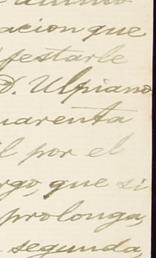 acion que
festarle
D. Ulpiano
uarenta
l por el
rgo, que si
prolonga,
segunda,